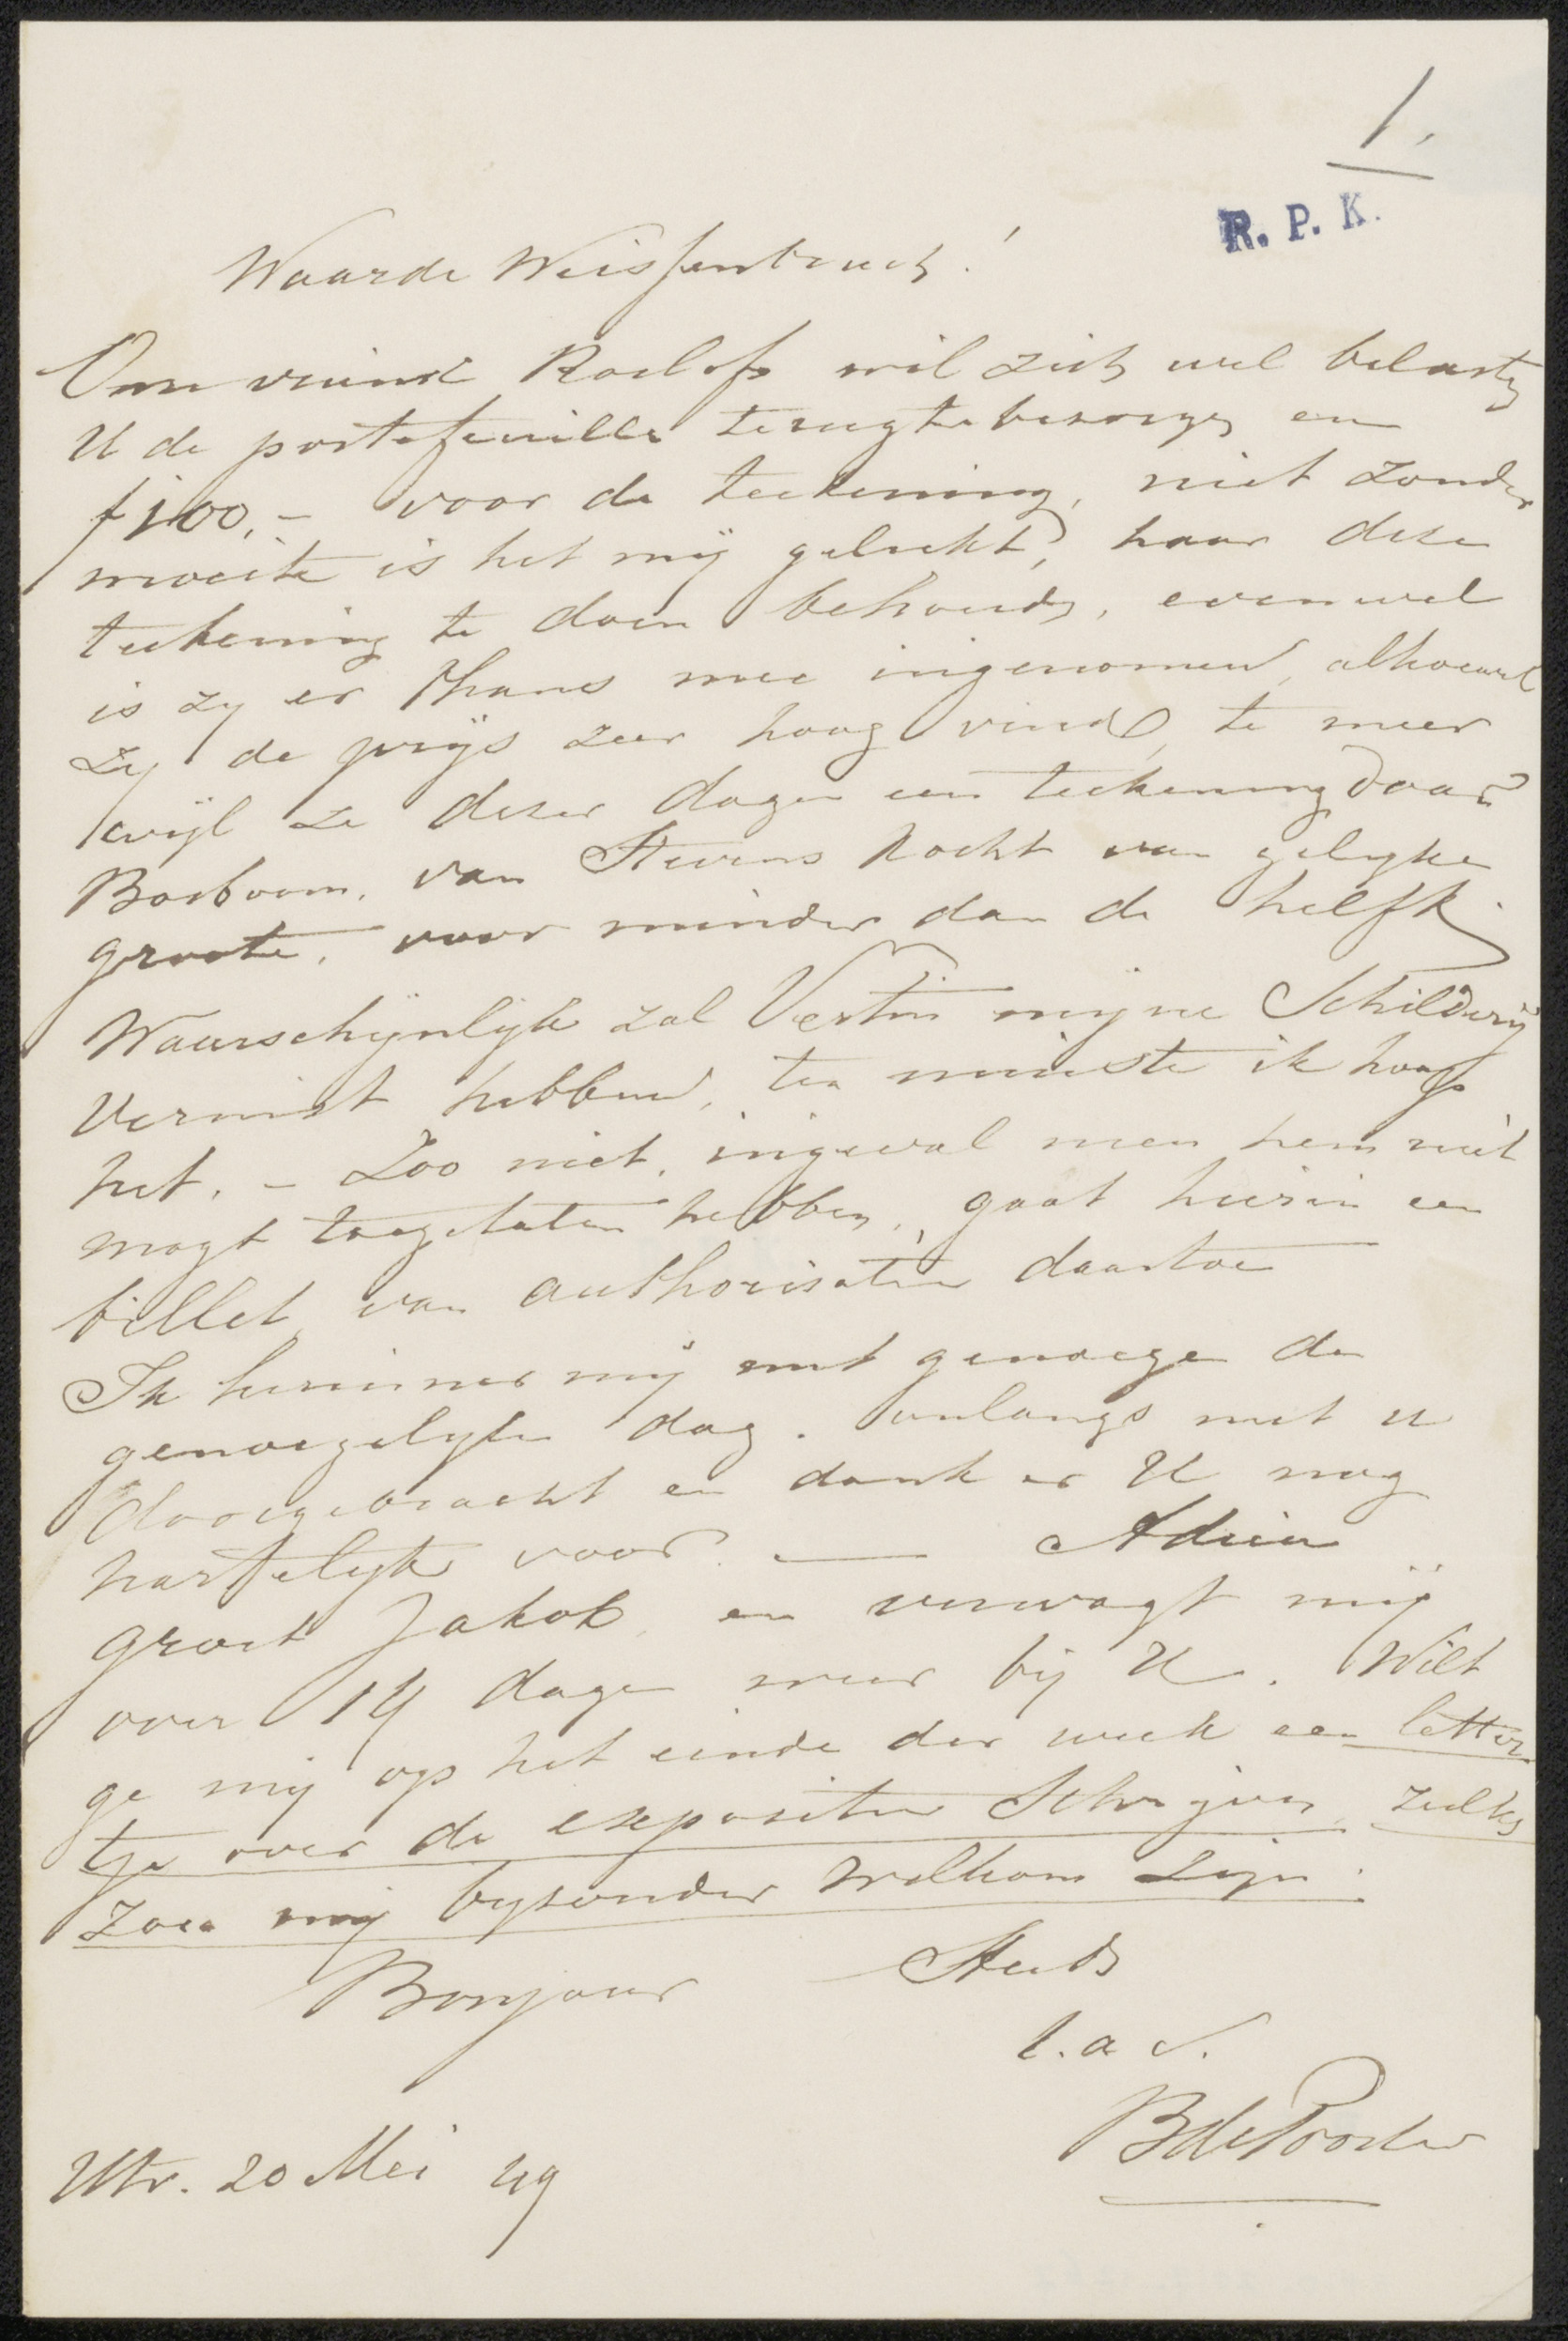 1.
R. P. K.
Waarde Weissenbruch!
Onze vriend Roelofs wil zich wel belasten
U de portefeuille terugtebezorgen en
f 100,- voor de teekening, niet zonder
moeite is het mij gelukt, haar deze
teekening te doen behouden, evenwel
is zy er thans mee ingenomen, alhoewel
zy de prijs zeer hoog vindt, te meer
wijl ze dezer dagen een teekening door
Bosboom, van Stevens kocht van gelyke
grootte, voor minder dan de helft.
Waarschijnlijk zal Vertin mijne Schilderij
Vernist hebben, ten minste ik hoop
het. - Zoo niet, ingeval men hem niet
mogt toegelaten hebben, gaat hierin een
billet van authorisatie daartoe
Ik herinner mij met genoegen de
genoegelyke dag. onlangs met u
doorgebracht en dank er U nog
hartelyk voor. — Adieu
groet Jakob en verwagt mij
over 14 dagen weer bij U. Wilt
ge mij op het einde der week een letter
tje over de expositie Schrijven, zulks
zou mij byzonder welkom zijn.
Bonjour Steeds
t. a. v.
B de Poorter
Utr. 20 Mei 49